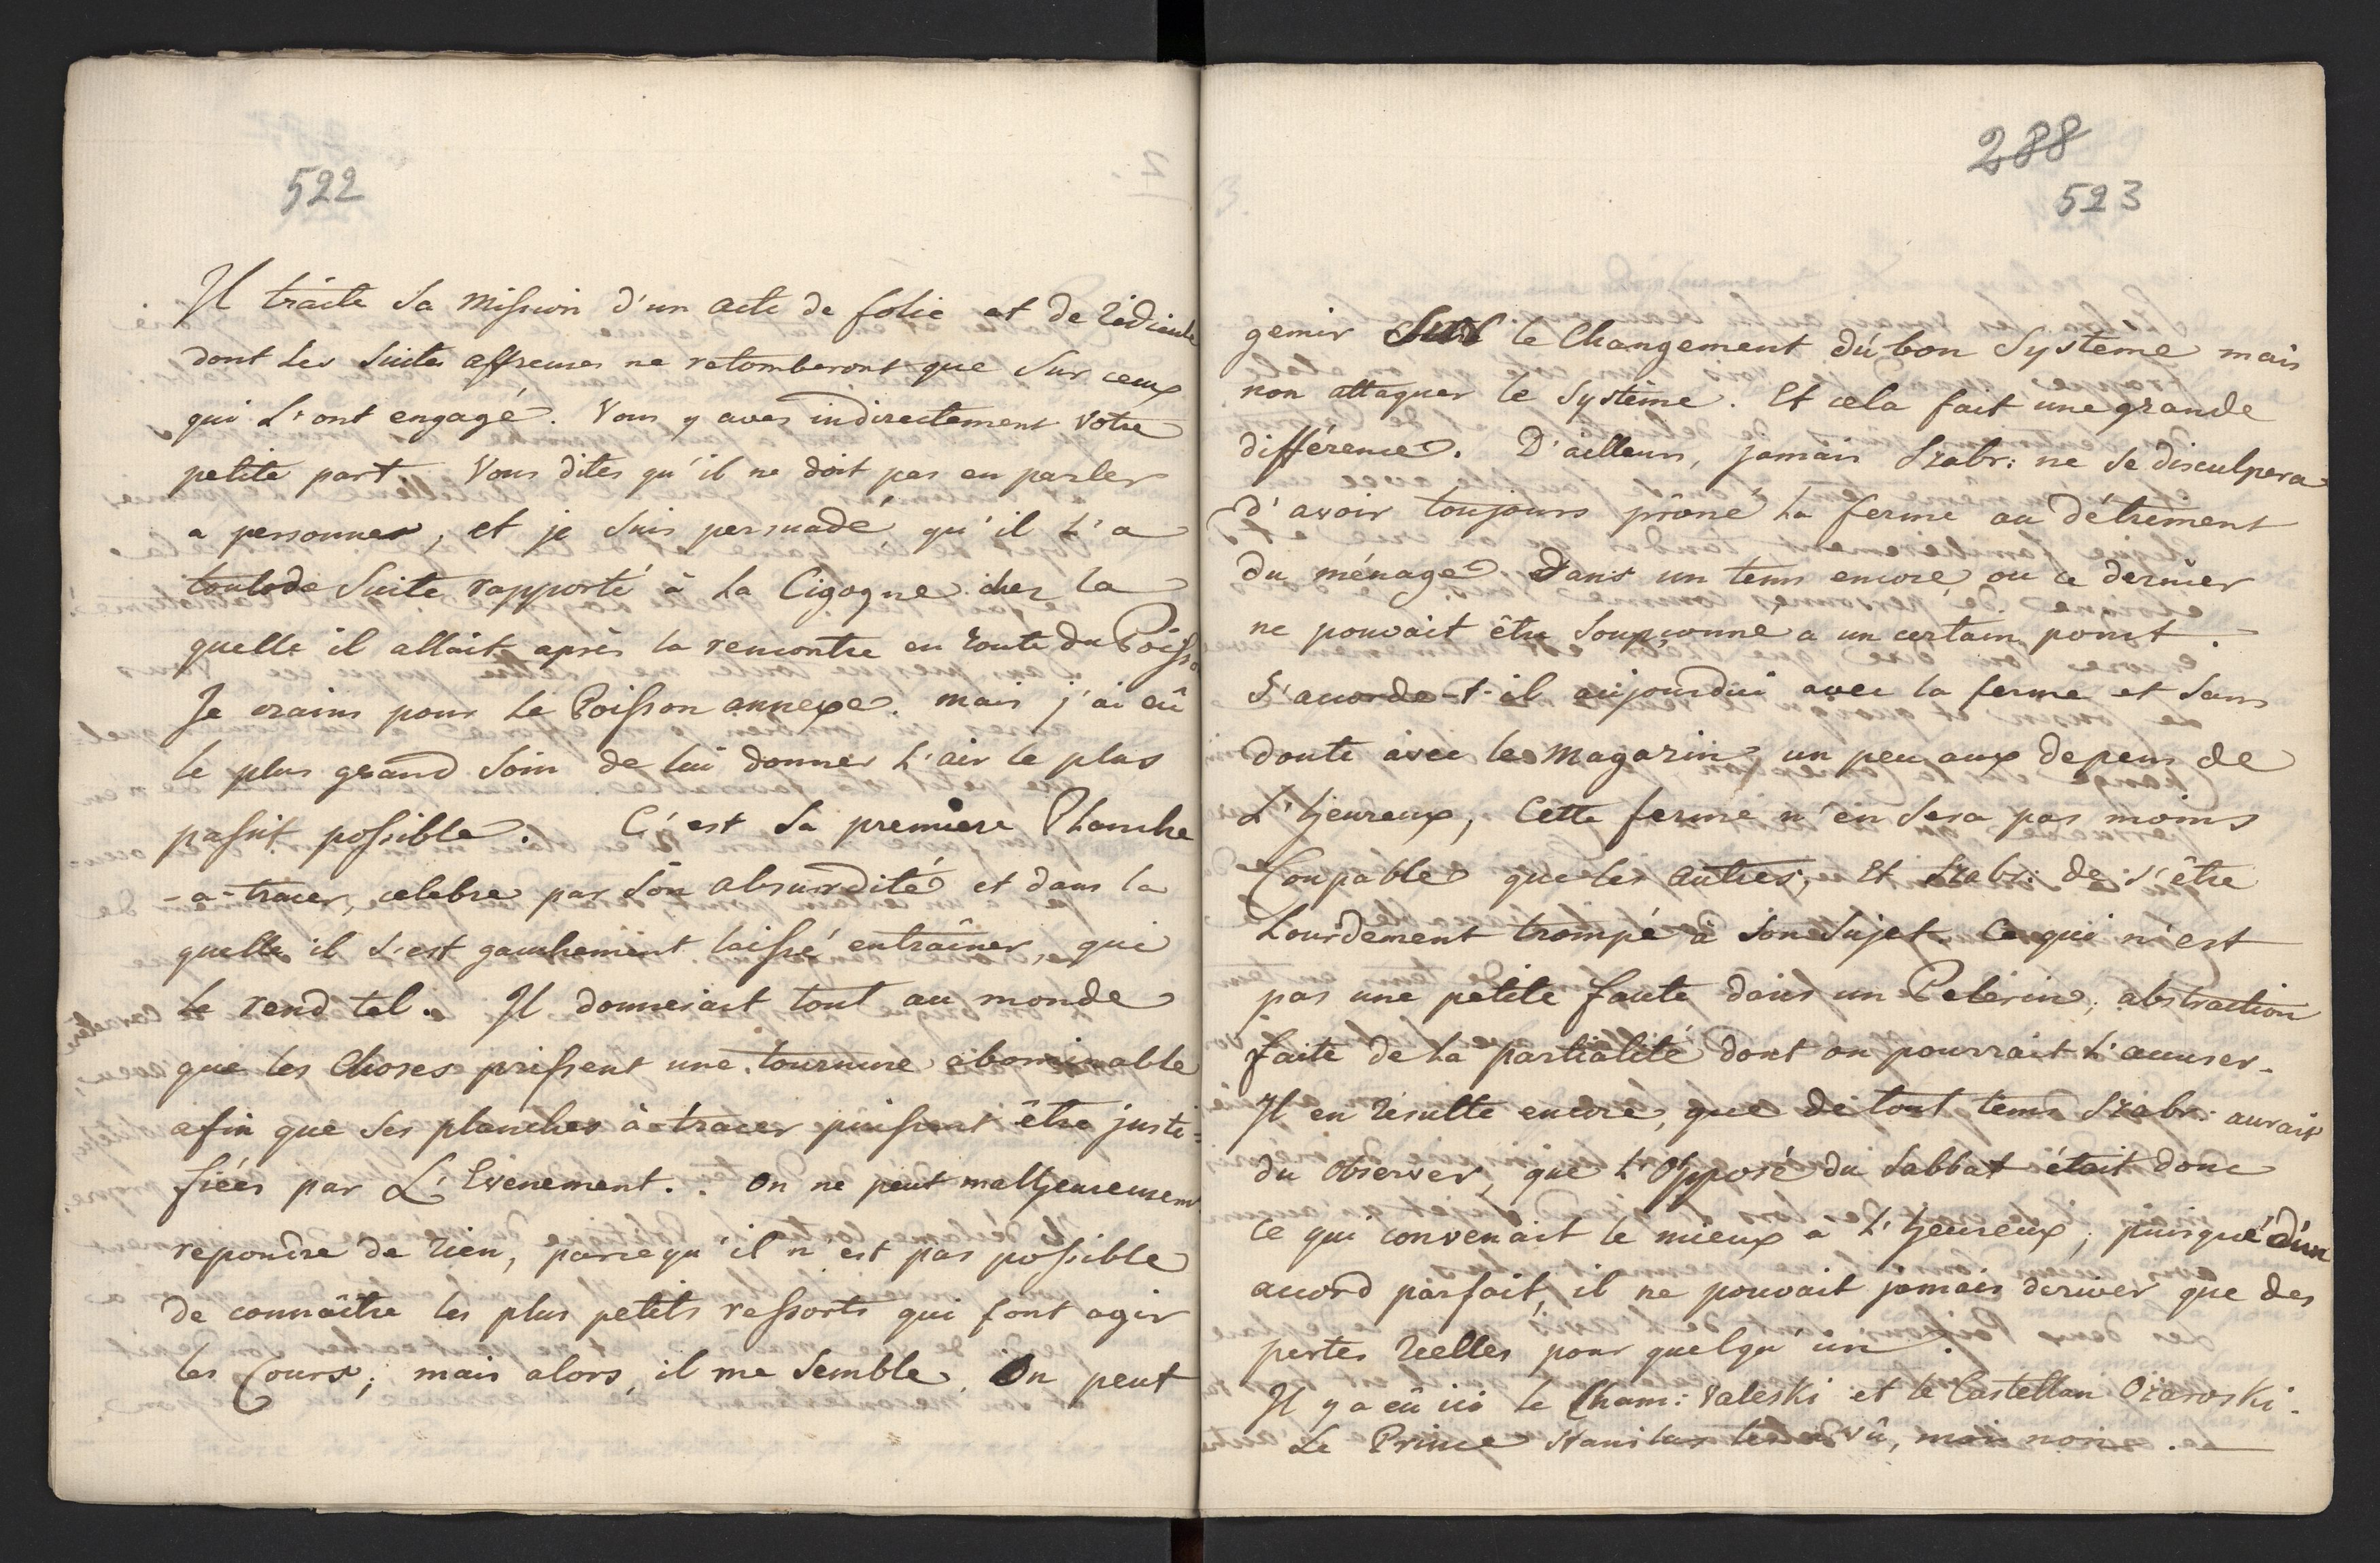 522
Il traite sa mission d'un acte de folie et de ridicule
dont les suites affreuses ne retomberont que sur ceux
qui l'ont engagé. Vous y aves indirectement votre
petite part. Vous dites qu'il ne doit pas en parler
a personnes, et je suis persuadé, qu'il l'a
toutede suite rapporté à la Cigogne chez la
quelle il allait après la rencontre en route du Poisso
Je crains pour le Poisson annexe. mais j'ai eû
le plus grand soin de lui donner l'air le plus
passif possible. C'est sa premiere Planche
-a-tracer, celebre par son absurdité et dans la
quelle il s'est gauchement laissé entraîner, qui
le rend tel. Il donnerait tout au monde
que les Choses prissent une tournure abominable
afin que ses planches à-tracer puissent être justi-
fiées par L'Evenement. On ne peut malheureusement
repondre de rien, parcequ'il n'est pas possible
de connaître les plus petits ressorts qui font agir
les Cours; mais alors, il me semble, On peut
288
523
gemir sur le Changement du bon Système mais
non attaquer le Système. Et cela fait une grande
différence. D'ailleurs, jamais Szabr: ne se disculpera
d'avoir toujours prôné la ferme au détriment
du ménage. Dans un tems encore, ou ce dernier
ne pouvait être soupçonné a un certain point.
S'accorde-t-il aujourdui avec la ferme et sans
doute avec le Magazin, un peu aux depens de
L'Heureux, Cette ferme n'en sera pas moins
Coupable que les autres, Et Szabr: de s'être
Lourdement trompé à son sujet. Ce qui n'est
pas une petite faute dans un Pelerin, abstraction
faite de la partialité dont on pourrait l'accuser.
Il en résulte encore, que de tout tems Szabr: aurait
du observer, que l'Opposé du Sabbat était donc
ce qui convenait le mieux a L'Heureux, puisque d'un
accord parfait, il ne pouvait jamais deriver que des
pertes réelles pour quelqu'un.
Il y a eû ici le Cham: Valeski et le Castellan Ozarowski.
Le Prince Stanislas les a vû, mais non.